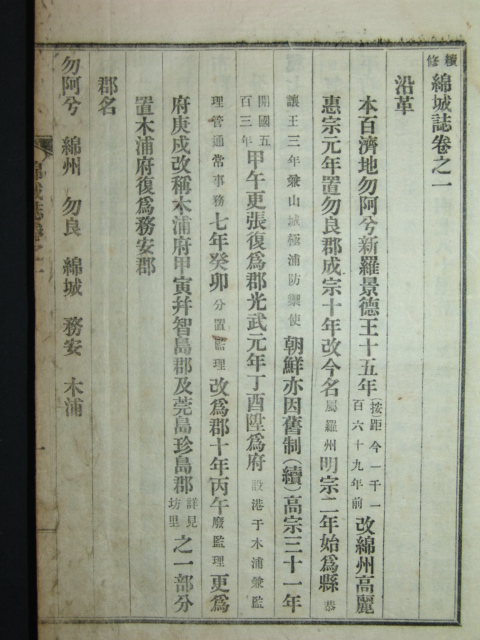 續修 綿城誌卷之一
沿革
本百濟地勿阿兮新羅景德王十五年(按)距今一千一百六十九年前改綿州高麗
惠宗元年置勿良郡成宗十年改今名屬羅州明宗二年始爲縣恭
讓王三年兼山城極浦防禦使朝鮮亦因舊制(續)高宗三十一年
開國五百三年甲午更張復爲郡光武元年丁酉陞爲府設港于木浦兼監
理管通常事務七年癸卯分置監理改爲郡十年丙午廢監理更爲
府庚戌改稱木浦府甲寅幷智島郡及莞島珍島郡詳見坊里之一部分
置木浦府復爲務安郡
郡名
勿阿兮 綿州 勿良 綿城 務安 木浦